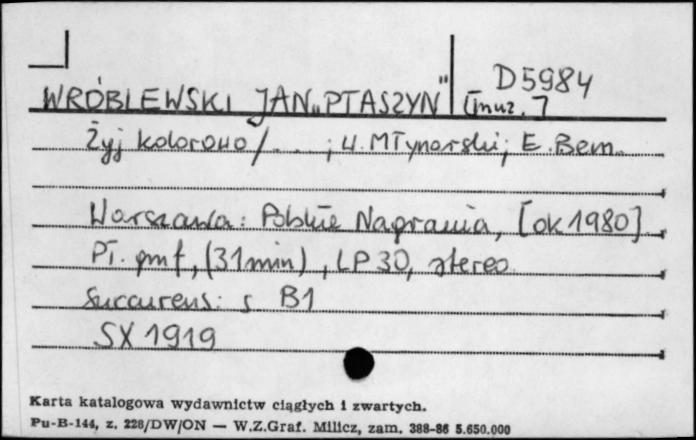 D5984
WRÓBLEWSKI JAN „PTASZYN" [muz.]
Żyj kolorowo / . . . ; W. Młynarski ; E. Bem.
Warszawa : Polskie Nagrania, [ok 1980]
Pł. gmf, (31 min), LP 30, stereo
s B1
SX 1919
Karta katalogowa wydawnictw ciągłych i zwartych.
Pu-B-144, z. 228/DW/ON — W.Z.Graf. Milicz, zam. 388-86 5.650.000